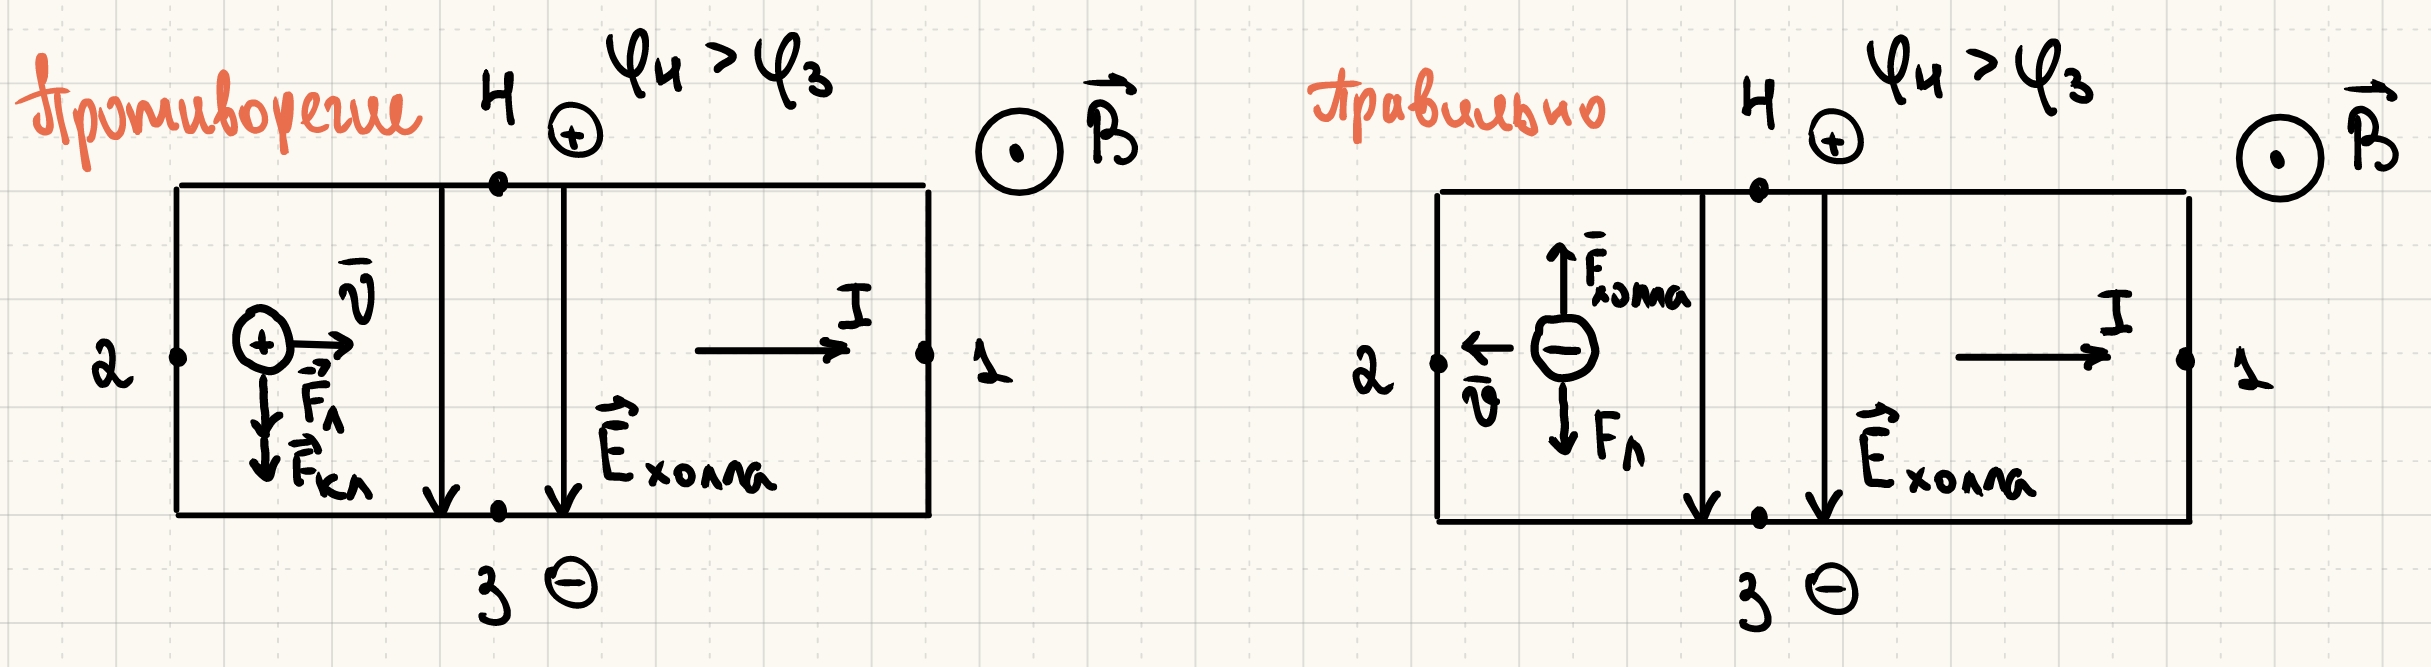 Противоречие
4 ⊕ φ₄ > φ₃
B⃗
v̅
2
F⃗л
F⃗кл
I
1
E⃗холла
3 ⊖
Правильно
4 ⊕ φ₄ > φ₃
B⃗
F̅холла
2
v̅
Fл
I
1
E⃗холла
3 ⊖